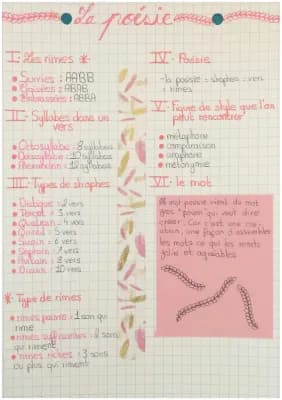 La poésie
I- Les rimes *
• Suivies : AABB
• Croisées : ABAB
• Embrassées : ABBA
II- Syllabes dans un
vers
• Octosyllabe : 8 syllabes
• Décasyllabe : 10 syllabes
• Alexandrin : 12 syllabes
III- Types de strophes
• Distique : 2 vers
• Tercet : 3 vers
• Quatrain : 4 vers
• Quintil : 5 vers
• Sizain : 6 vers
• Septain : 7 vers
• Huitain : 8 vers
• Dizain : 10 vers
* Type de rimes
• rimes pauvre : 1 son qui
rime
• rimes suffisantes : 2 sons
qui riment
• rimes riches : 3 sons
ou plus qui riment
IV- Poésie
-la poésie = strophes = vers
= rimes
V- Figure de style que l'on
peut rencontrer
• métaphore
• comparaison
• anaphore
• métonymie
VI- le mot
le mot poésie vient du mot
grec "poiein qui veut dire
créer. Car c'est une
façon d'assembler
les mots ce qui les rends
jolie et agréables